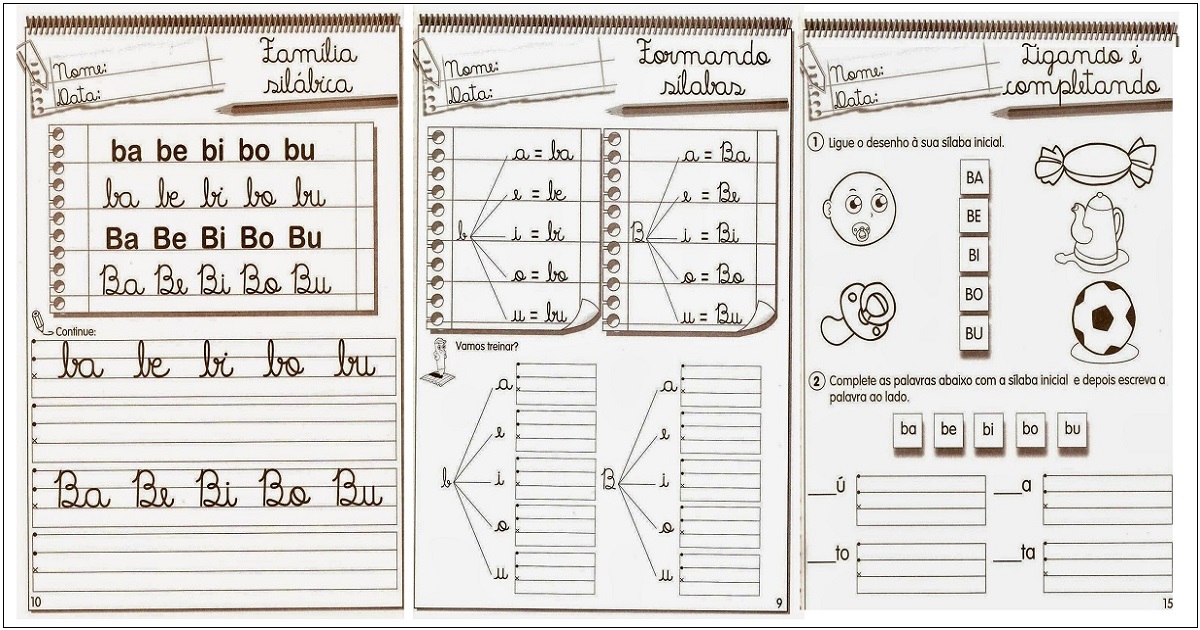 Nome:
Data:
Família
silábica
ba be bi bo bu
ba be bi bo bu
Ba Be Bi Bo Bu
Ba Be Bi Bo Bu
Continue:
ba be bi bo bu
Ba Be Bi Bo Bu
10
Nome:
Data:
Formando
sílabas
b
a = ba
e = be
i = bi
o = bo
u = bu
B
a = Ba
e = Be
i = Bi
o = Bo
u = Bu
Vamos treinar?
b
a
e
i
o
u
B
a
e
i
o
u
9
Nome:
Data:
Ligando e
completando
1 Ligue o desenho à sua sílaba inicial.
BA
BE
BI
BO
BU
2 Complete as palavras abaixo com a sílaba inicial e depois escreva a
palavra ao lado.
ba be bi bo bu
___ú ___a
___to ___ta
15